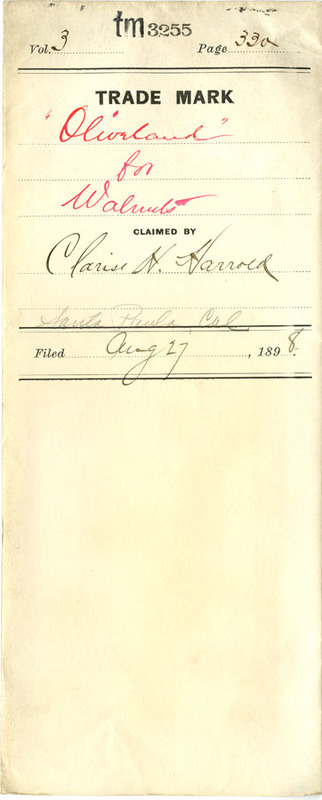 tm 3255
Vol. 3 Page 330
TRADE MARK
"Oliveland"
for
Walnuts
CLAIMED BY
Clarise N. Harrold
Santa Paula, Cal
Filed Aug 27, 1898.